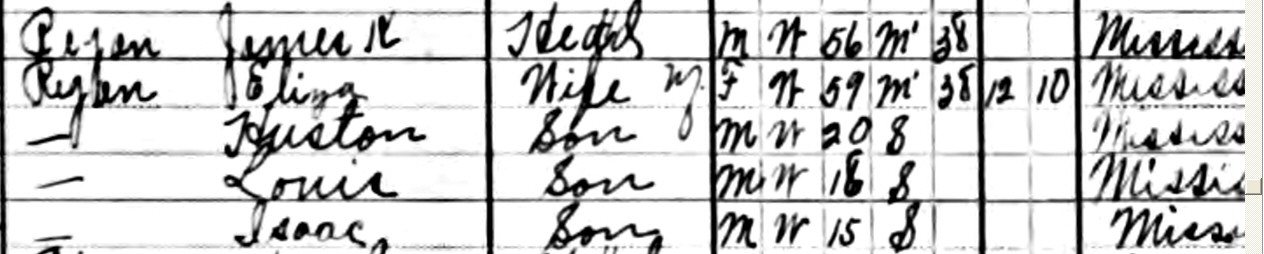 Ryan James R Head M W 56 M' 38 Mississ
Ryan Eliza Wife F W 59 M' 38 12 10 Mississ
— Huston Son M W 20 S Mississ
— Louis Son M W 18 S Missis
— Isaac Son M W 15 S Miss